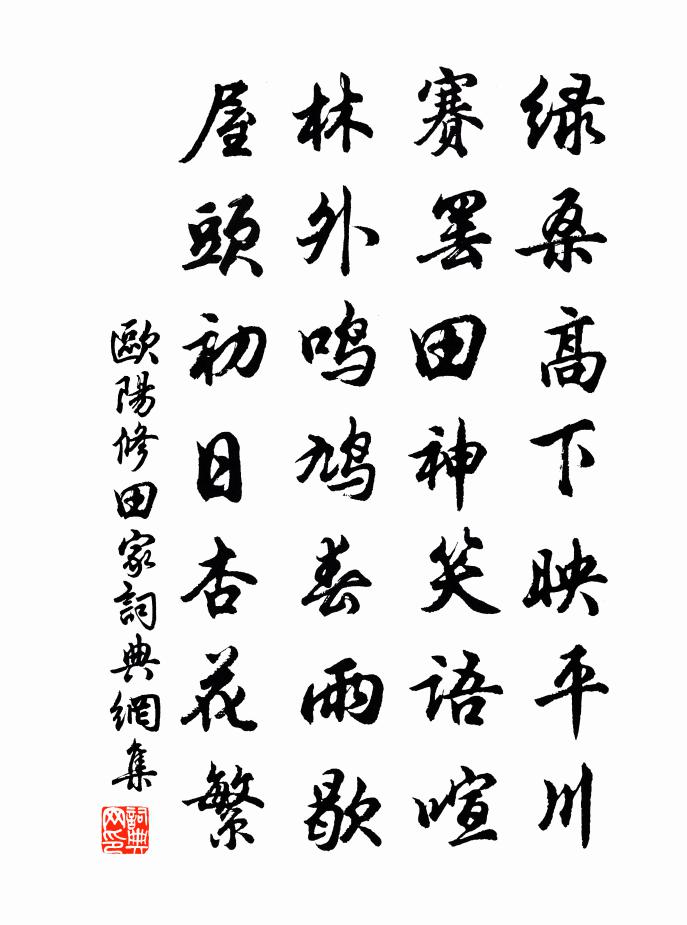 绿桑高下映平川
赛罢田神笑语喧
林外鸣鸠春雨歇
屋頭初日杏花繁
歐陽修田家詞典網集
詞典网印